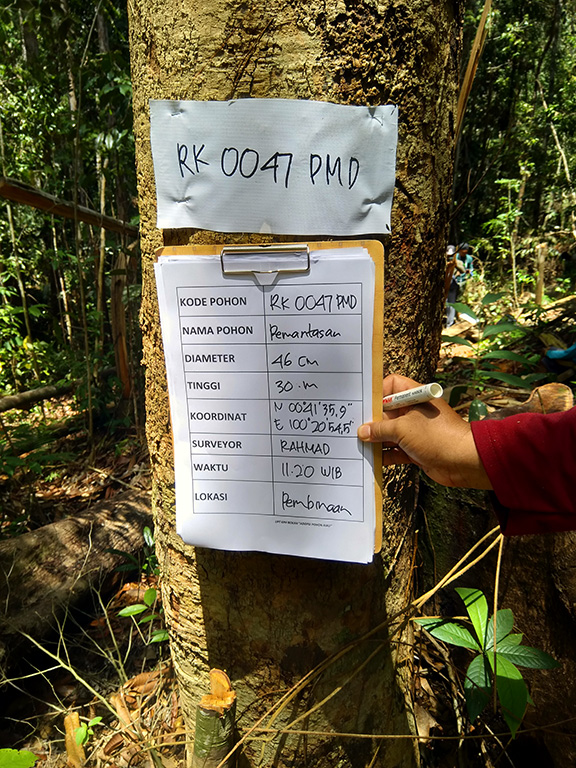 RK 0047 PMD
KODE POHON RK 0047 PMD
NAMA POHON Pemantasan
DIAMETER 46 cm
TINGGI 30 m
KOORDINAT N 00°41'35,9"
E 100°20'54,5"
SURVEYOR RAHMAD
WAKTU 11.20 WIB
LOKASI Pembinaan